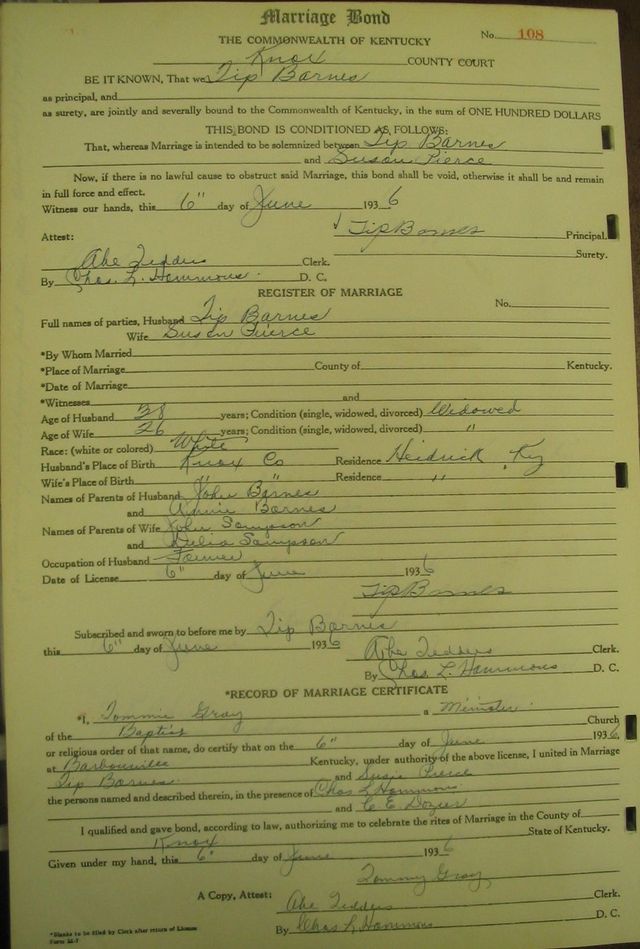 Marriage Bond
No. 108
THE COMMONWEALTH OF KENTUCKY
Knox COUNTY COURT
BE IT KNOWN, That we Tip Barnes
as principal, and
as surety, are jointly and severally bound to the Commonwealth of Kentucky, in the sum of ONE HUNDRED DOLLARS
THIS BOND IS CONDITIONED AS FOLLOWS:
That, whereas Marriage is intended to be solemnized between Tip Barnes
and Susan Pierce
Now, if there is no lawful cause to obstruct said Marriage, this bond shall be void, otherwise it shall be and remain
in full force and effect.
Witness our hands, this 6" day of June 1936
Tip Barnes Principal.
Attest:
Surety.
Abe Tedders Clerk.
By Chas. L. Hammons. D. C.
REGISTER OF MARRIAGE
No.
Full names of parties, Husband Tip Barnes
Wife Susan Pierce
*By Whom Married
*Place of Marriage County of Kentucky.
*Date of Marriage
*Witnesses and
Age of Husband 38 years; Condition (single, widowed, divorced) Widowed
Age of Wife 26 years; Condition (single, widowed, divorced) "
Race: (white or colored) White
Husband's Place of Birth Knox Co Residence Heidrick, Ky
Wife's Place of Birth " " Residence "
Names of Parents of Husband John Barnes
and Barnes
Names of Parents of Wife John Sampson
and Delia Sampson
Occupation of Husband Farmer
Date of License 6" day of June 1936
Tip Barnes
Subscribed and sworn to before me by Tip Barnes
this 6" day of June 1936
Abe Tedders Clerk.
By Chas. L. Hammons D. C.
*RECORD OF MARRIAGE CERTIFICATE
*I, Tommie Gray a Minister
of the Baptist Church
or religious order of that name, do certify that on the 6" day of June 1936,
at Barbourville Kentucky, under authority of the above license, I united in Marriage
Tip Barnes and Susie Pierce
the persons named and described therein, in the presence of Chas L Hammons
and C. E. Dozier
I qualified and gave bond, according to law, authorizing me to celebrate the rites of Marriage in the County of
Knox State of Kentucky.
Given under my hand, this 6" day of June 1936
Tommy Gray
A Copy, Attest: Abe Tedders Clerk.
By Chas L Hammons D. C.
*Blanks to be filled by Clerk after return of License